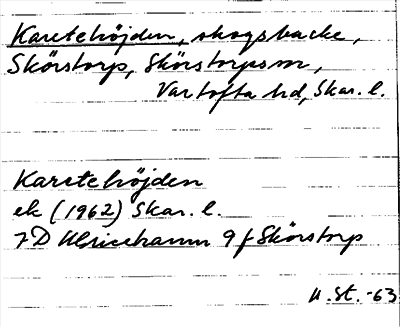 Karetehöjden, skogsbacke,
Skörstorp, Skörstorps sn,
Vartofta hd, Skar. l.
Karetehöjden
ek (1962) Skar. l.
7D Ulricehamn 9 f Skörstorp
U. St. -63